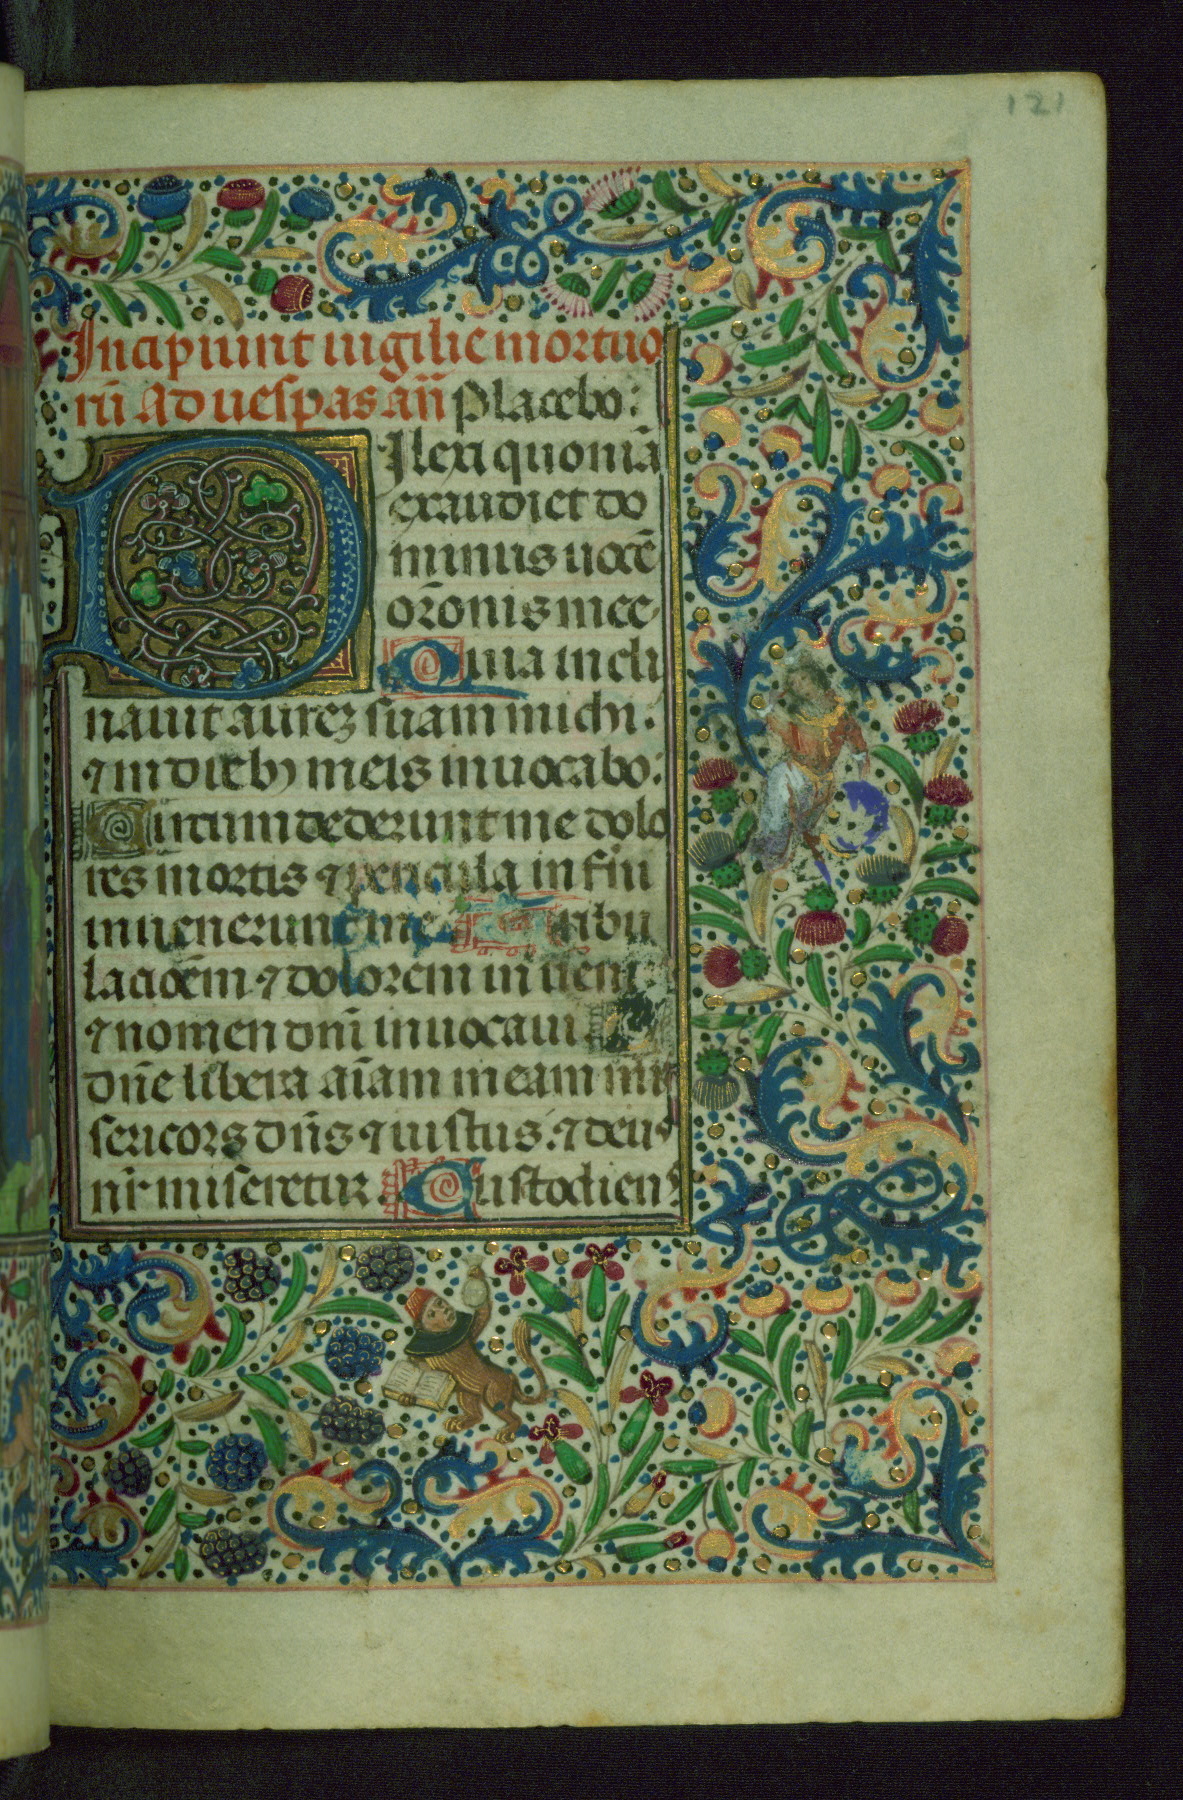 121
Incipiunt uigilie mortuo
rū Ad uespas añ Placebo:
Dilexi quoniā
exaudiet do
minus uocē
orōnis mee
Quia incli
nauit aurez suam michi.
⁊ in diebꝰ meis inuocabo.
Circumdederunt me dolo
res mortis ⁊ pericula infni
inuenerunt me Tribu
lacioēm ⁊ dolorem inueni
⁊ nomen dnī inuocaui. O
dnē libera aīam meam mi
sericors dn̄s ⁊ iustus. ⁊ deus
nr̄ miseretur Custodiens